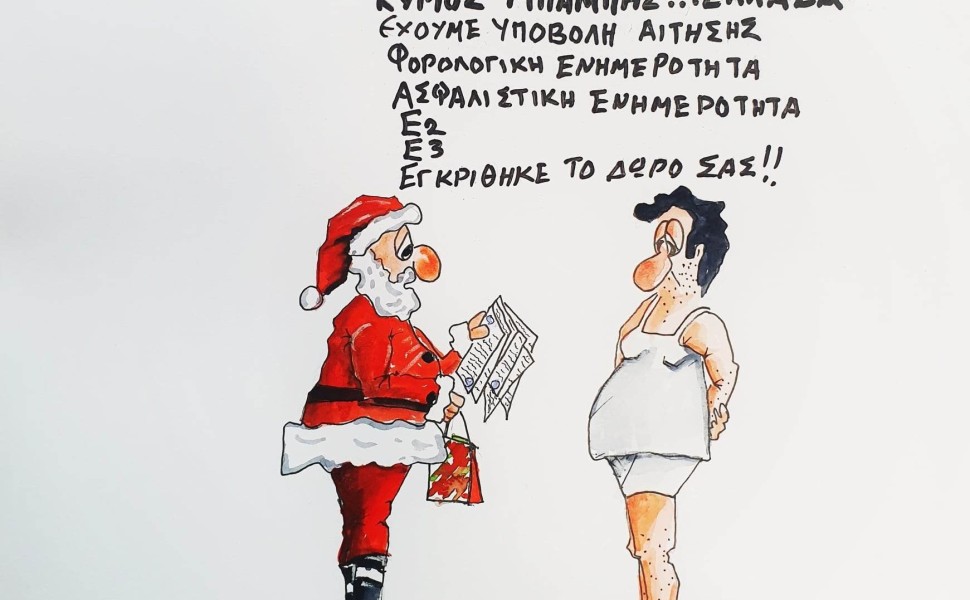 ΕΧΟΥΜΕ ΥΠΟΒΟΛΗ ΑΙΤΗΣΗΣ
ΦΟΡΟΛΟΓΙΚΗ ΕΝΗΜΕΡΟΤΗΤΑ
ΑΣΦΑΛΙΣΤΙΚΗ ΕΝΗΜΕΡΟΤΗΤΑ
Ε2
Ε3
ΕΓΚΡΙΘΗΚΕ ΤΟ ΔΩΡΟ ΣΑΣ!!